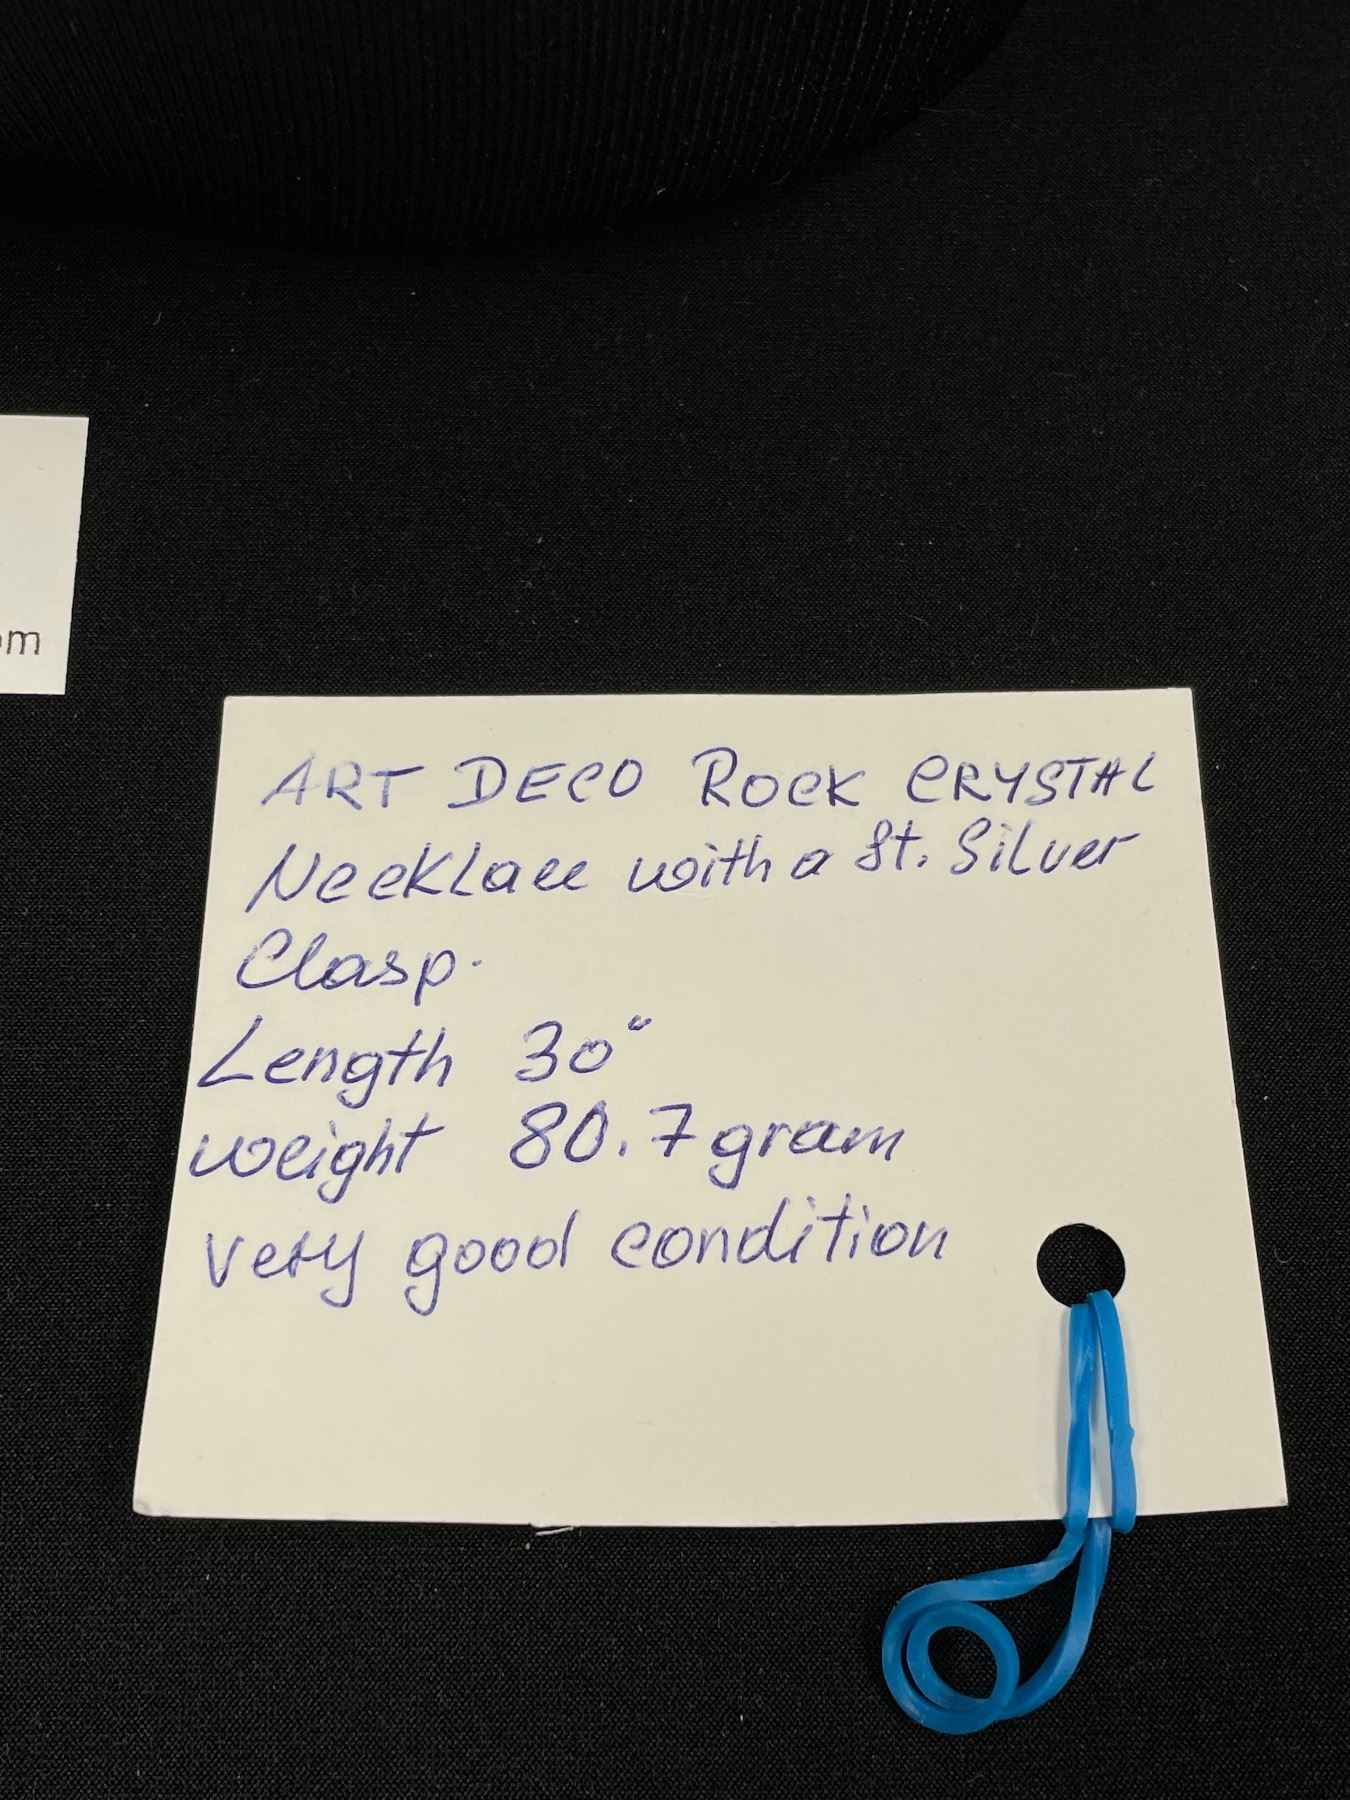 om
ART DECO ROCK CRYSTAL
Necklace with a St. Silver
Clasp.
Length 30"
weight 80.7 gram
very good condition